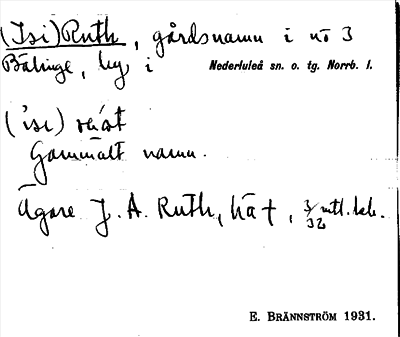 (Isi)Ruth, gårdsnamn i nr 3
Bälinge, by i Nederluleå sn. o. tg. Norrb. l.
(ꞌisi)
Gammalt namn.
Ägare J. A. Ruth, 3/32 mtl.
E. BRÄNNSTRÖM 1931.